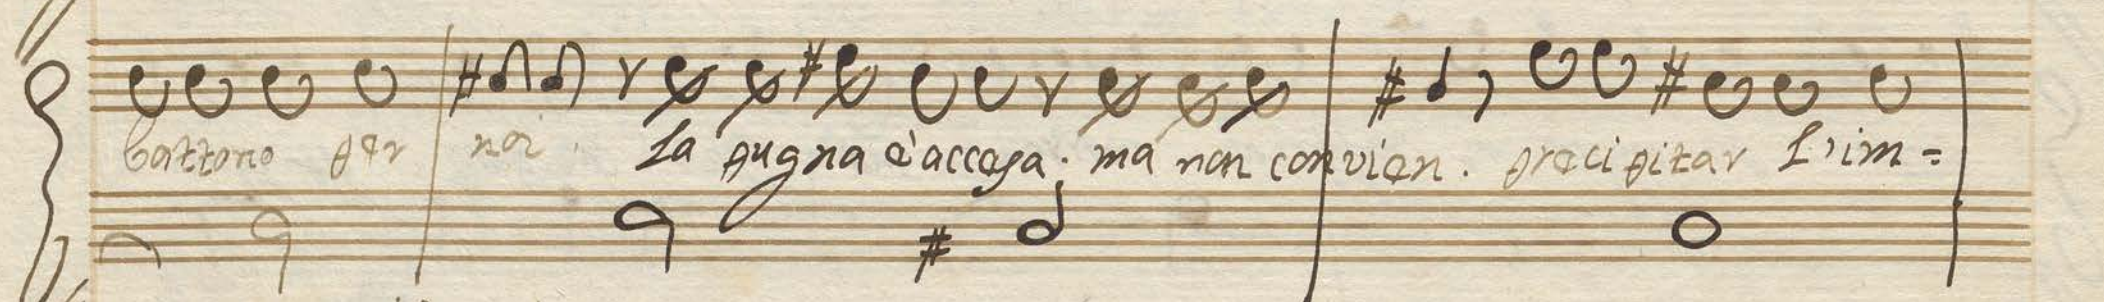 battono per noi. La pugna è accesa. ma non convien. precipitar L'im=